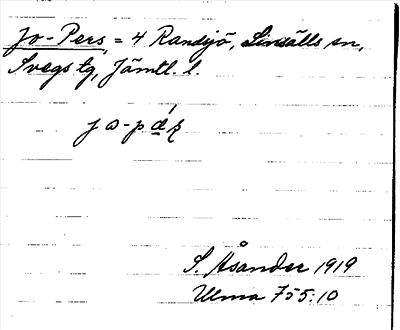 Jo-Pers, = 4 Randsjö, Linsälls sn,
Svegs tg, Jämtl. l.
S. Åsander 1919
Ulma 755:10